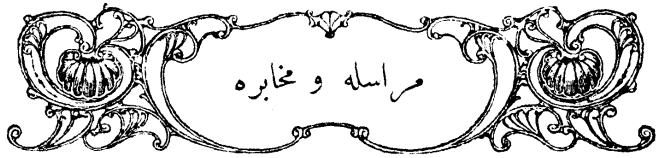 مراسله و مخابره